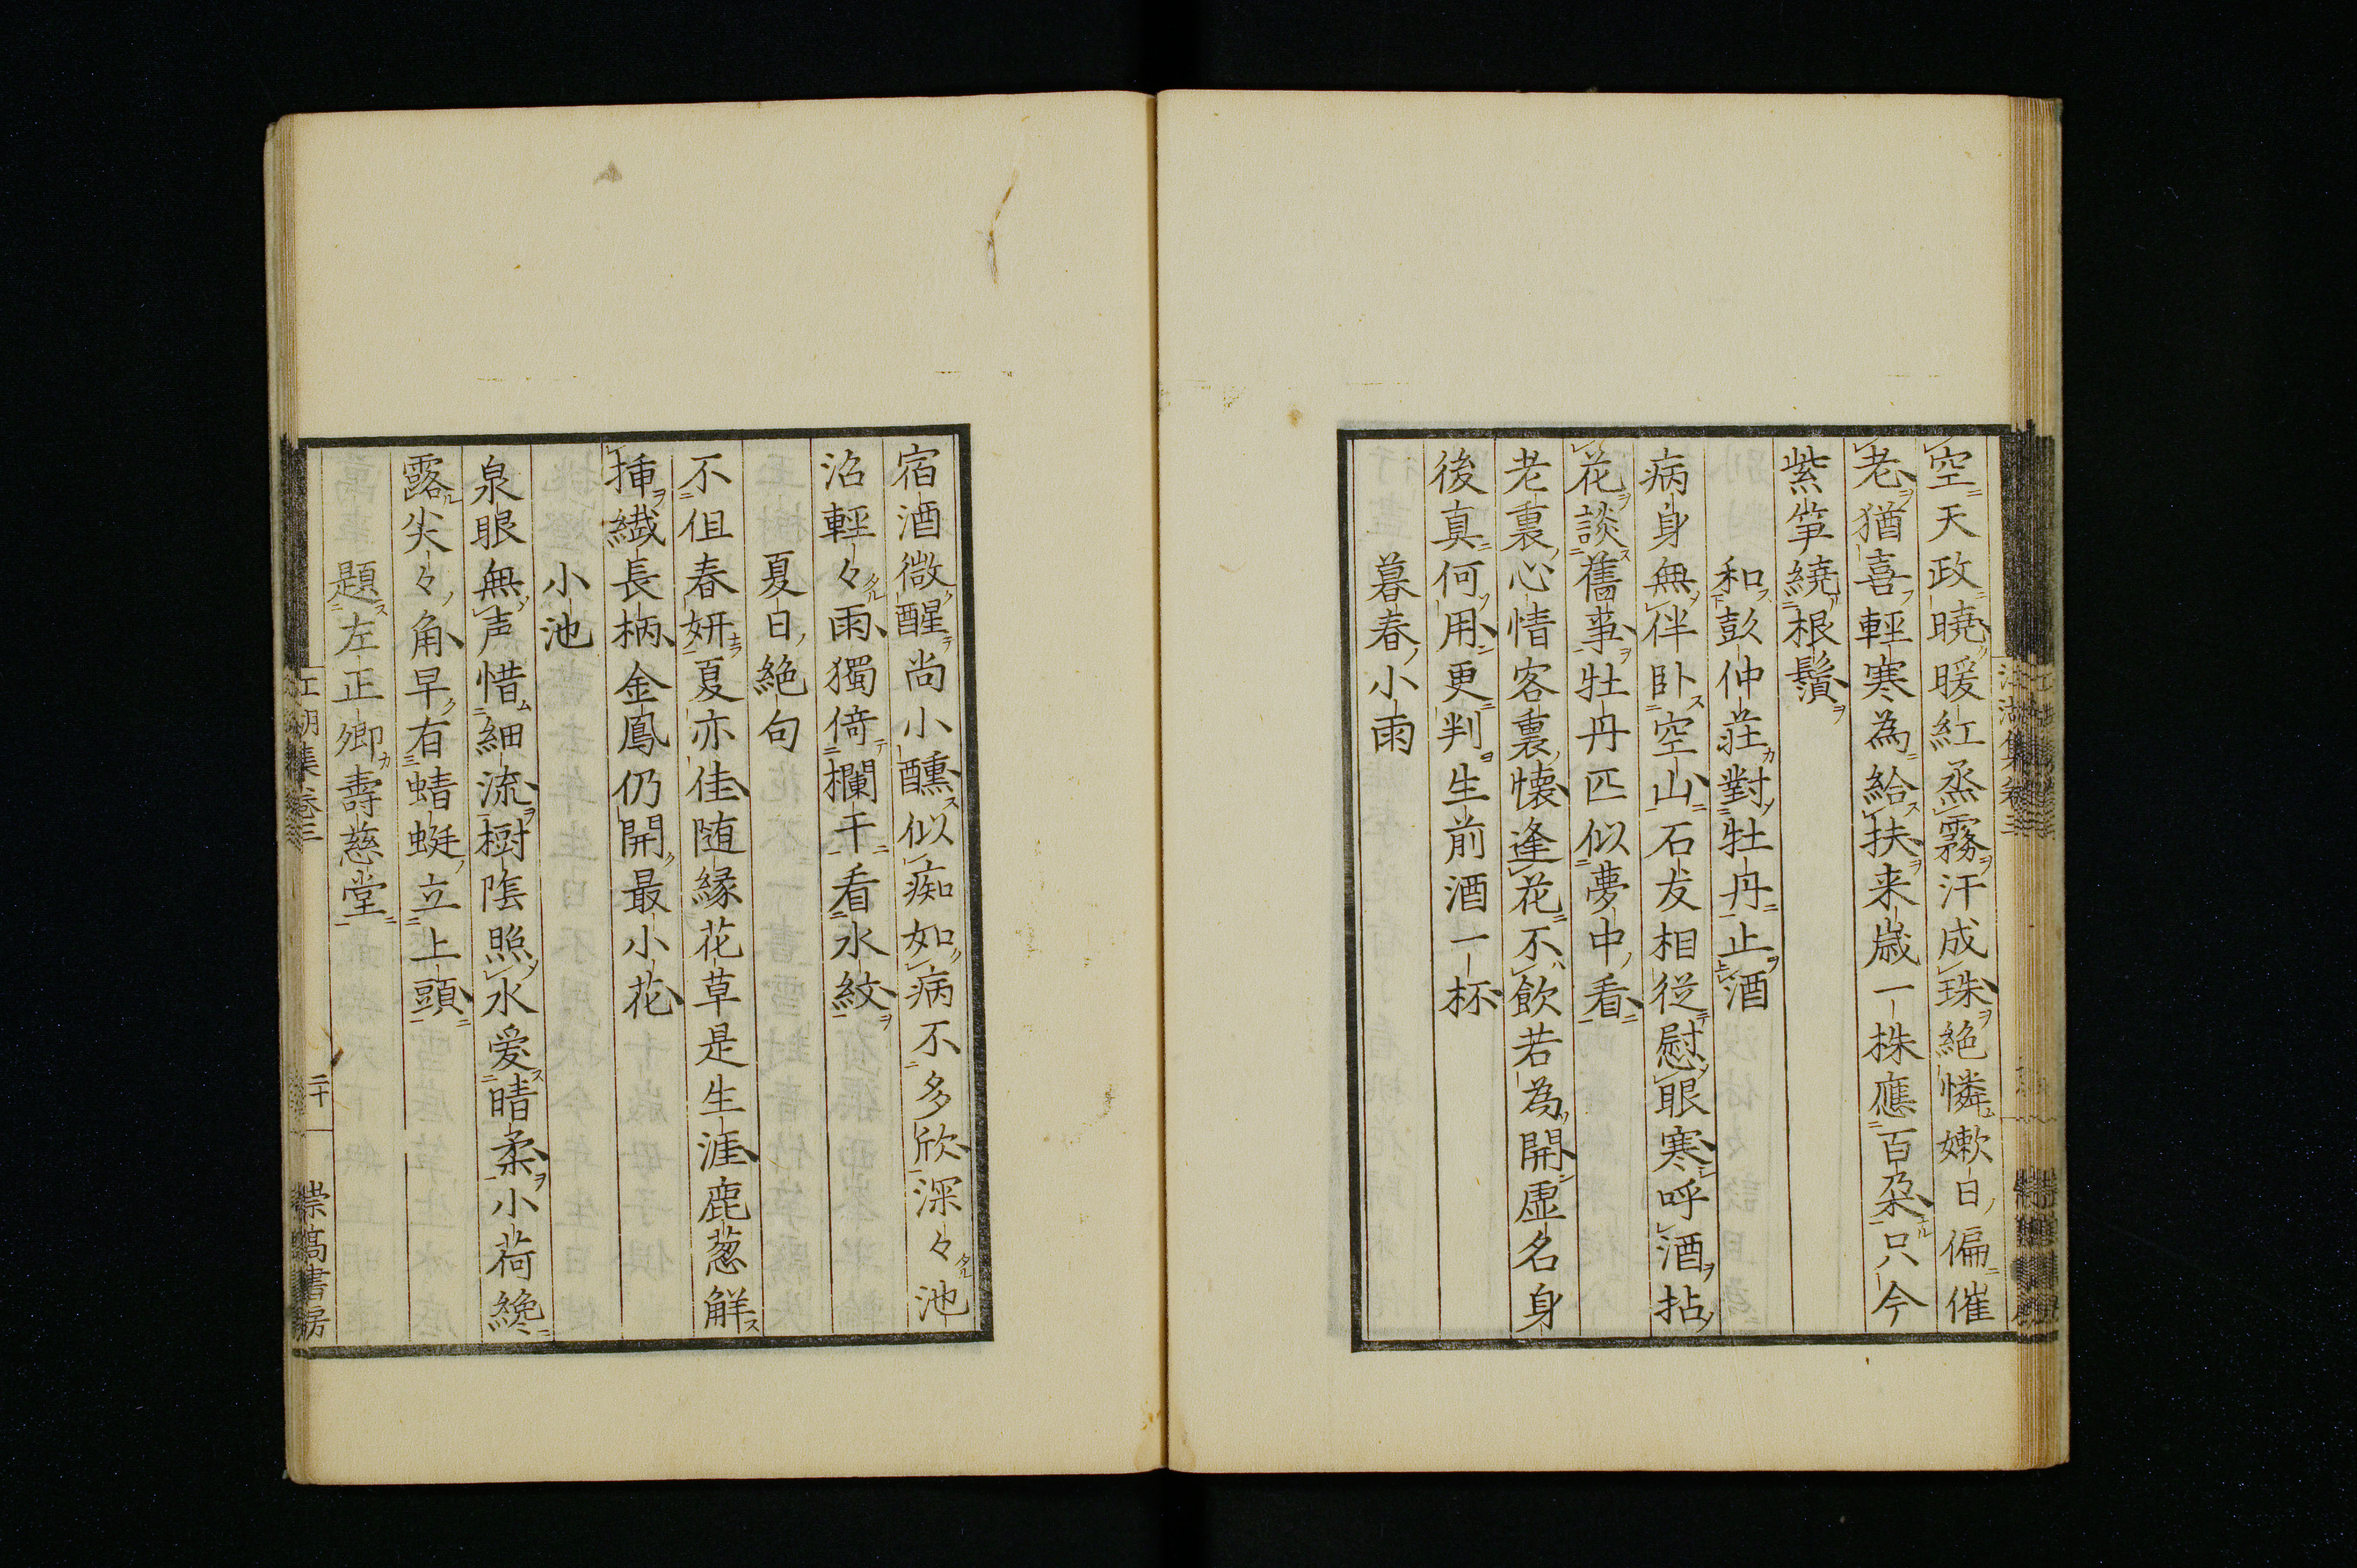 空天政暁暖紅烝霧汗成珠絶憐嫰日偏催
老猶喜輕寒為給扶来歳一株應百朶只今
紫笋繞根鬚
和彭仲莊對牡丹止酒
病身無伴卧空山石友相從慰眼寒呼酒拈
花談舊事牡丹匹似夢中看
老裏心情客裏懐逢花不飲若為開虚名身
後真何用更判生前酒一杯
暮春小雨
宿酒微醒尚小醺似痴如病不多欣深々池
沼輕々雨獨倚欄干看水紋
夏日絶句
不但春妍夏亦佳随緑花草是生涯鹿葱解
挿纎長柄金鳳仍開最小花
小池
泉眼無声惜細流樹陰照水爱晴柔小荷纔
露尖々角早有蜻蜓立上頭
題左正卿壽慈堂
江湖集巻三
二十
崇高書房